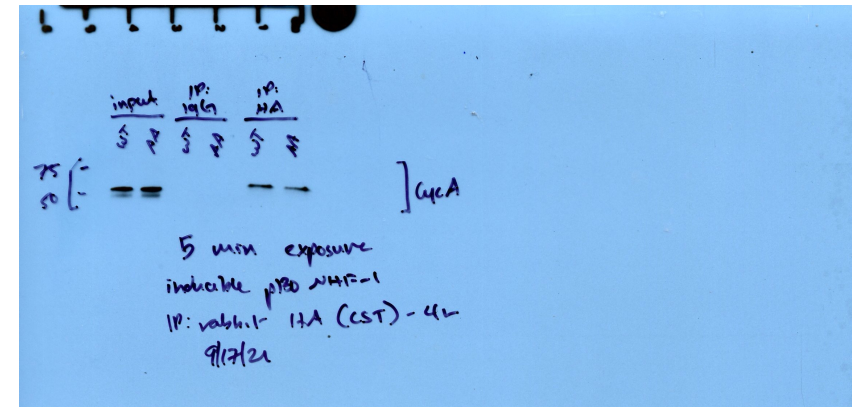 input IP: IgG IP: HA
75
50
CycA
5 min exposure
inducible p130 NHF-1
IP: rabbit HA (CST) - 4μ
9/17/21